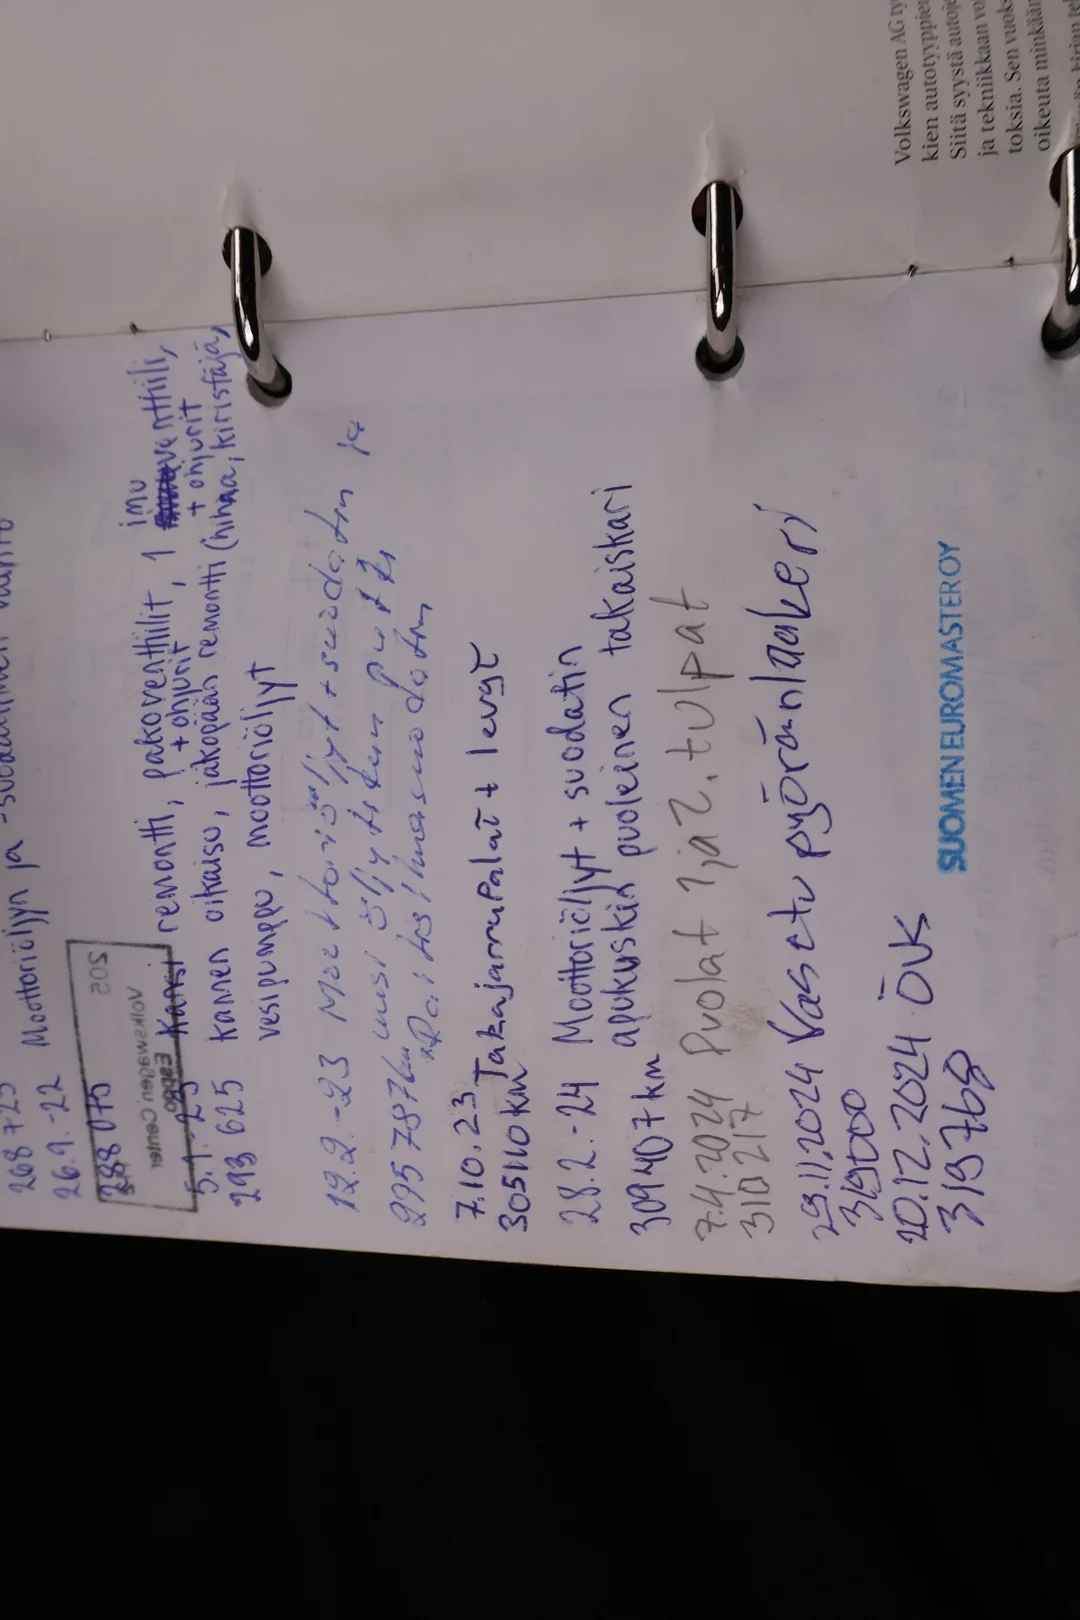 268 725
26.9.-22 Moottoriöljyn ja -suodattimen vaihto
288 075
5.1.-23 Kansi remontti, pakoventtiilit, 1 imu venttiili,
+ ohjurit + ohjurit
293 625 kannen oikaisu, jakopään remontti (hihna, kiristäjä,
vesipumppu, moottoriöljyt
205
Volkswagen Center
Espoo
12.2.-23 Moottoriöljyt + suodatin ja
295787km uusi öljytikun putki
Raitisilmasuodatin
7.10.23 Takajarrupalat + levyt
305110 km
28.2.-24 Moottoriöljyt + suodatin
309407 km apukuskin puoleinen takaiskari
7.4.2024 Puolat 1 ja 2. tulpat
310217
29.11.2024 Vas etu pyöränlaakeri
319000
20.12.2024 ÖVK
319768
SUOMEN EUROMASTER OY
Volkswagen AG
kien autotyyppien
Siitä syystä
ja tekniikkaan
toksia. Sen vuoksi
oikeuta minkään